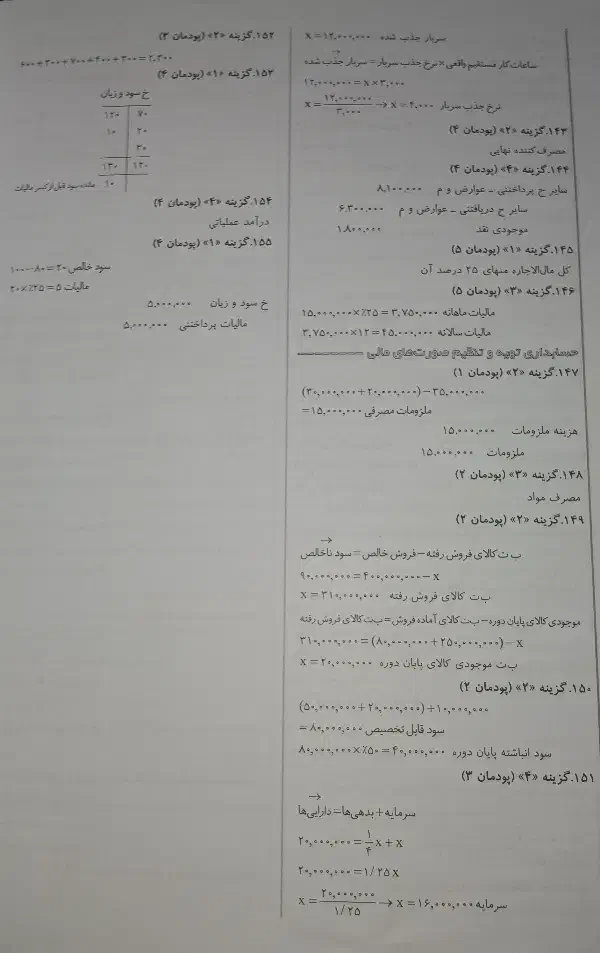 سربار جذب شده x = ۱۲,۰۰۰,۰۰۰
ساعات کار مستقیم واقعی × نرخ جذب سربار = سربار جذب شده
۱۲,۰۰۰,۰۰۰ = x × ۳,۰۰۰
x = ۱۲,۰۰۰,۰۰۰ / ۳,۰۰۰ → x = ۴,۰۰۰ نرخ جذب سربار
۱۴۳. گزینه «۲» (پودمان ۴)
مصرف کننده نهایی
۱۴۴. گزینه «۴» (پودمان ۴)
سایر ح پرداختنی ـ عوارض و م ۸,۱۰۰,۰۰۰
سایر ح دریافتنی ـ عوارض و م ۶,۳۰۰,۰۰۰
موجودی نقد ۱,۸۰۰,۰۰۰
۱۴۵. گزینه «۱» (پودمان ۵)
کل مال‌الاجاره منهای ۲۵ درصد آن
۱۴۶. گزینه «۳» (پودمان ۵)
مالیات ماهانه ۱۵,۰۰۰,۰۰۰ × ٪۲۵ = ۳,۷۵۰,۰۰۰
مالیات سالانه ۳,۷۵۰,۰۰۰ × ۱۲ = ۴۵,۰۰۰,۰۰۰
حسابداری تهیه و تنظیم صورت‌های مالی
۱۴۷. گزینه «۲» (پودمان ۱)
(۳۰,۰۰۰,۰۰۰ + ۲۰,۰۰۰,۰۰۰) − ۳۵,۰۰۰,۰۰۰
= ۱۵,۰۰۰,۰۰۰ ملزومات مصرفی
هزینه ملزومات ۱۵,۰۰۰,۰۰۰
ملزومات ۱۵,۰۰۰,۰۰۰
۱۴۸. گزینه «۳» (پودمان ۲)
مصرف مواد
۱۴۹. گزینه «۲» (پودمان ۲)
ب ت کالای فروش رفته − فروش خالص = سود ناخالص
۹۰,۰۰۰,۰۰۰ = ۴۰۰,۰۰۰,۰۰۰ − x
ب ت کالای فروش رفته x = ۳۱۰,۰۰۰,۰۰۰
موجودی کالای پایان دوره − ب ت کالای آماده فروش = ب ت کالای فروش رفته
۳۱۰,۰۰۰,۰۰۰ = (۸۰,۰۰۰,۰۰۰ + ۲۵۰,۰۰۰,۰۰۰) − x
ب ت موجودی کالای پایان دوره x = ۲۰,۰۰۰,۰۰۰
۱۵۰. گزینه «۲» (پودمان ۲)
(۵۰,۰۰۰,۰۰۰ + ۲۰,۰۰۰,۰۰۰) + ۱۰,۰۰۰,۰۰۰
= ۸۰,۰۰۰,۰۰۰ سود قابل تخصیص
سود انباشته پایان دوره ۸۰,۰۰۰,۰۰۰ × ٪۵۰ = ۴۰,۰۰۰,۰۰۰
۱۵۱. گزینه «۴» (پودمان ۳)
سرمایه + بدهی‌ها = دارایی‌ها
۲۰,۰۰۰,۰۰۰ = ۱/۴ x + x
۲۰,۰۰۰,۰۰۰ = ۱/۲۵ x
x = ۲۰,۰۰۰,۰۰۰ / ۱/۲۵ → x = ۱۶,۰۰۰,۰۰۰ سرمایه
۱۵۲. گزینه «۲» (پودمان ۳)
۶۰۰ + ۳۰۰ + ۷۰۰ + ۴۰۰ + ۳۰۰ = ۲,۳۰۰
۱۵۳. گزینه «۱» (پودمان ۴)
خ سود و زیان
۱۲۰ ۷۰
۱۰ ۲۰
۳۰
۱۳۰ ۱۲۰
۱۰ مانده سود قبل از کسر مالیات
۱۵۴. گزینه «۴» (پودمان ۴)
درآمد عملیاتی
۱۵۵. گزینه «۱» (پودمان ۴)
سود خالص ۱۰۰ − ۸۰ = ۲۰
مالیات ۲۰ × ٪۲۵ = ۵
خ سود و زیان ۵,۰۰۰,۰۰۰
مالیات پرداختنی ۵,۰۰۰,۰۰۰